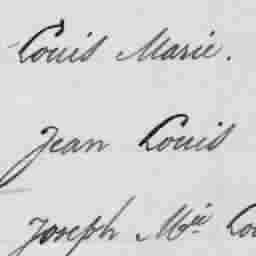 Louis Marie.
Jean Louis
Joseph Mie